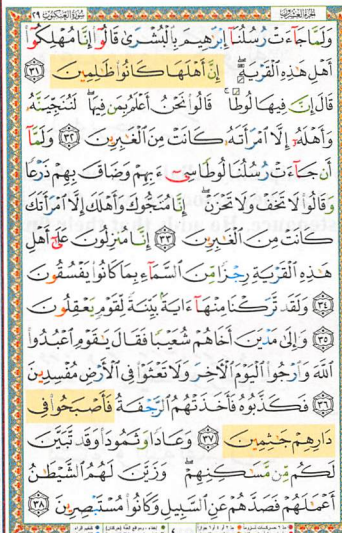 الجزء العشرون سورة العنكبوت ٢٩
وَلَمَّا جَآءَتْ رُسُلُنَآ إِبْرَٰهِيمَ بِٱلْبُشْرَىٰ قَالُوٓا۟ إِنَّا مُهْلِكُوٓا۟
أَهْلِ هَٰذِهِ ٱلْقَرْيَةِ ۖ إِنَّ أَهْلَهَا كَانُوا۟ ظَٰلِمِينَ ٣١
قَالَ إِنَّ فِيهَا لُوطًا ۚ قَالُوا۟ نَحْنُ أَعْلَمُ بِمَن فِيهَا ۖ لَنُنَجِّيَنَّهُۥ
وَأَهْلَهُۥٓ إِلَّا ٱمْرَأَتَهُۥ كَانَتْ مِنَ ٱلْغَٰبِرِينَ ٣٢ وَلَمَّآ
أَن جَآءَتْ رُسُلُنَا لُوطًا سِىٓءَ بِهِمْ وَضَاقَ بِهِمْ ذَرْعًا
وَقَالُوا۟ لَا تَخَفْ وَلَا تَحْزَنْ ۖ إِنَّا مُنَجُّوكَ وَأَهْلَكَ إِلَّا ٱمْرَأَتَكَ
كَانَتْ مِنَ ٱلْغَٰبِرِينَ ٣٣ إِنَّا مُنزِلُونَ عَلَىٰٓ أَهْلِ
هَٰذِهِ ٱلْقَرْيَةِ رِجْزًا مِّنَ ٱلسَّمَآءِ بِمَا كَانُوا۟ يَفْسُقُونَ
٣٤ وَلَقَد تَّرَكْنَا مِنْهَآ ءَايَةًۢ بَيِّنَةً لِّقَوْمٍ يَعْقِلُونَ
٣٥ وَإِلَىٰ مَدْيَنَ أَخَاهُمْ شُعَيْبًا فَقَالَ يَٰقَوْمِ ٱعْبُدُوا۟
ٱللَّهَ وَٱرْجُوا۟ ٱلْيَوْمَ ٱلْءَاخِرَ وَلَا تَعْثَوْا۟ فِى ٱلْأَرْضِ مُفْسِدِينَ
٣٦ فَكَذَّبُوهُ فَأَخَذَتْهُمُ ٱلرَّجْفَةُ فَأَصْبَحُوا۟ فِى
دَارِهِمْ جَٰثِمِينَ ٣٧ وَعَادًا وَثَمُودَا۟ وَقَد تَّبَيَّنَ
لَكُم مِّن مَّسَٰكِنِهِمْ ۖ وَزَيَّنَ لَهُمُ ٱلشَّيْطَٰنُ
أَعْمَٰلَهُمْ فَصَدَّهُمْ عَنِ ٱلسَّبِيلِ وَكَانُوا۟ مُسْتَبْصِرِينَ ٣٨